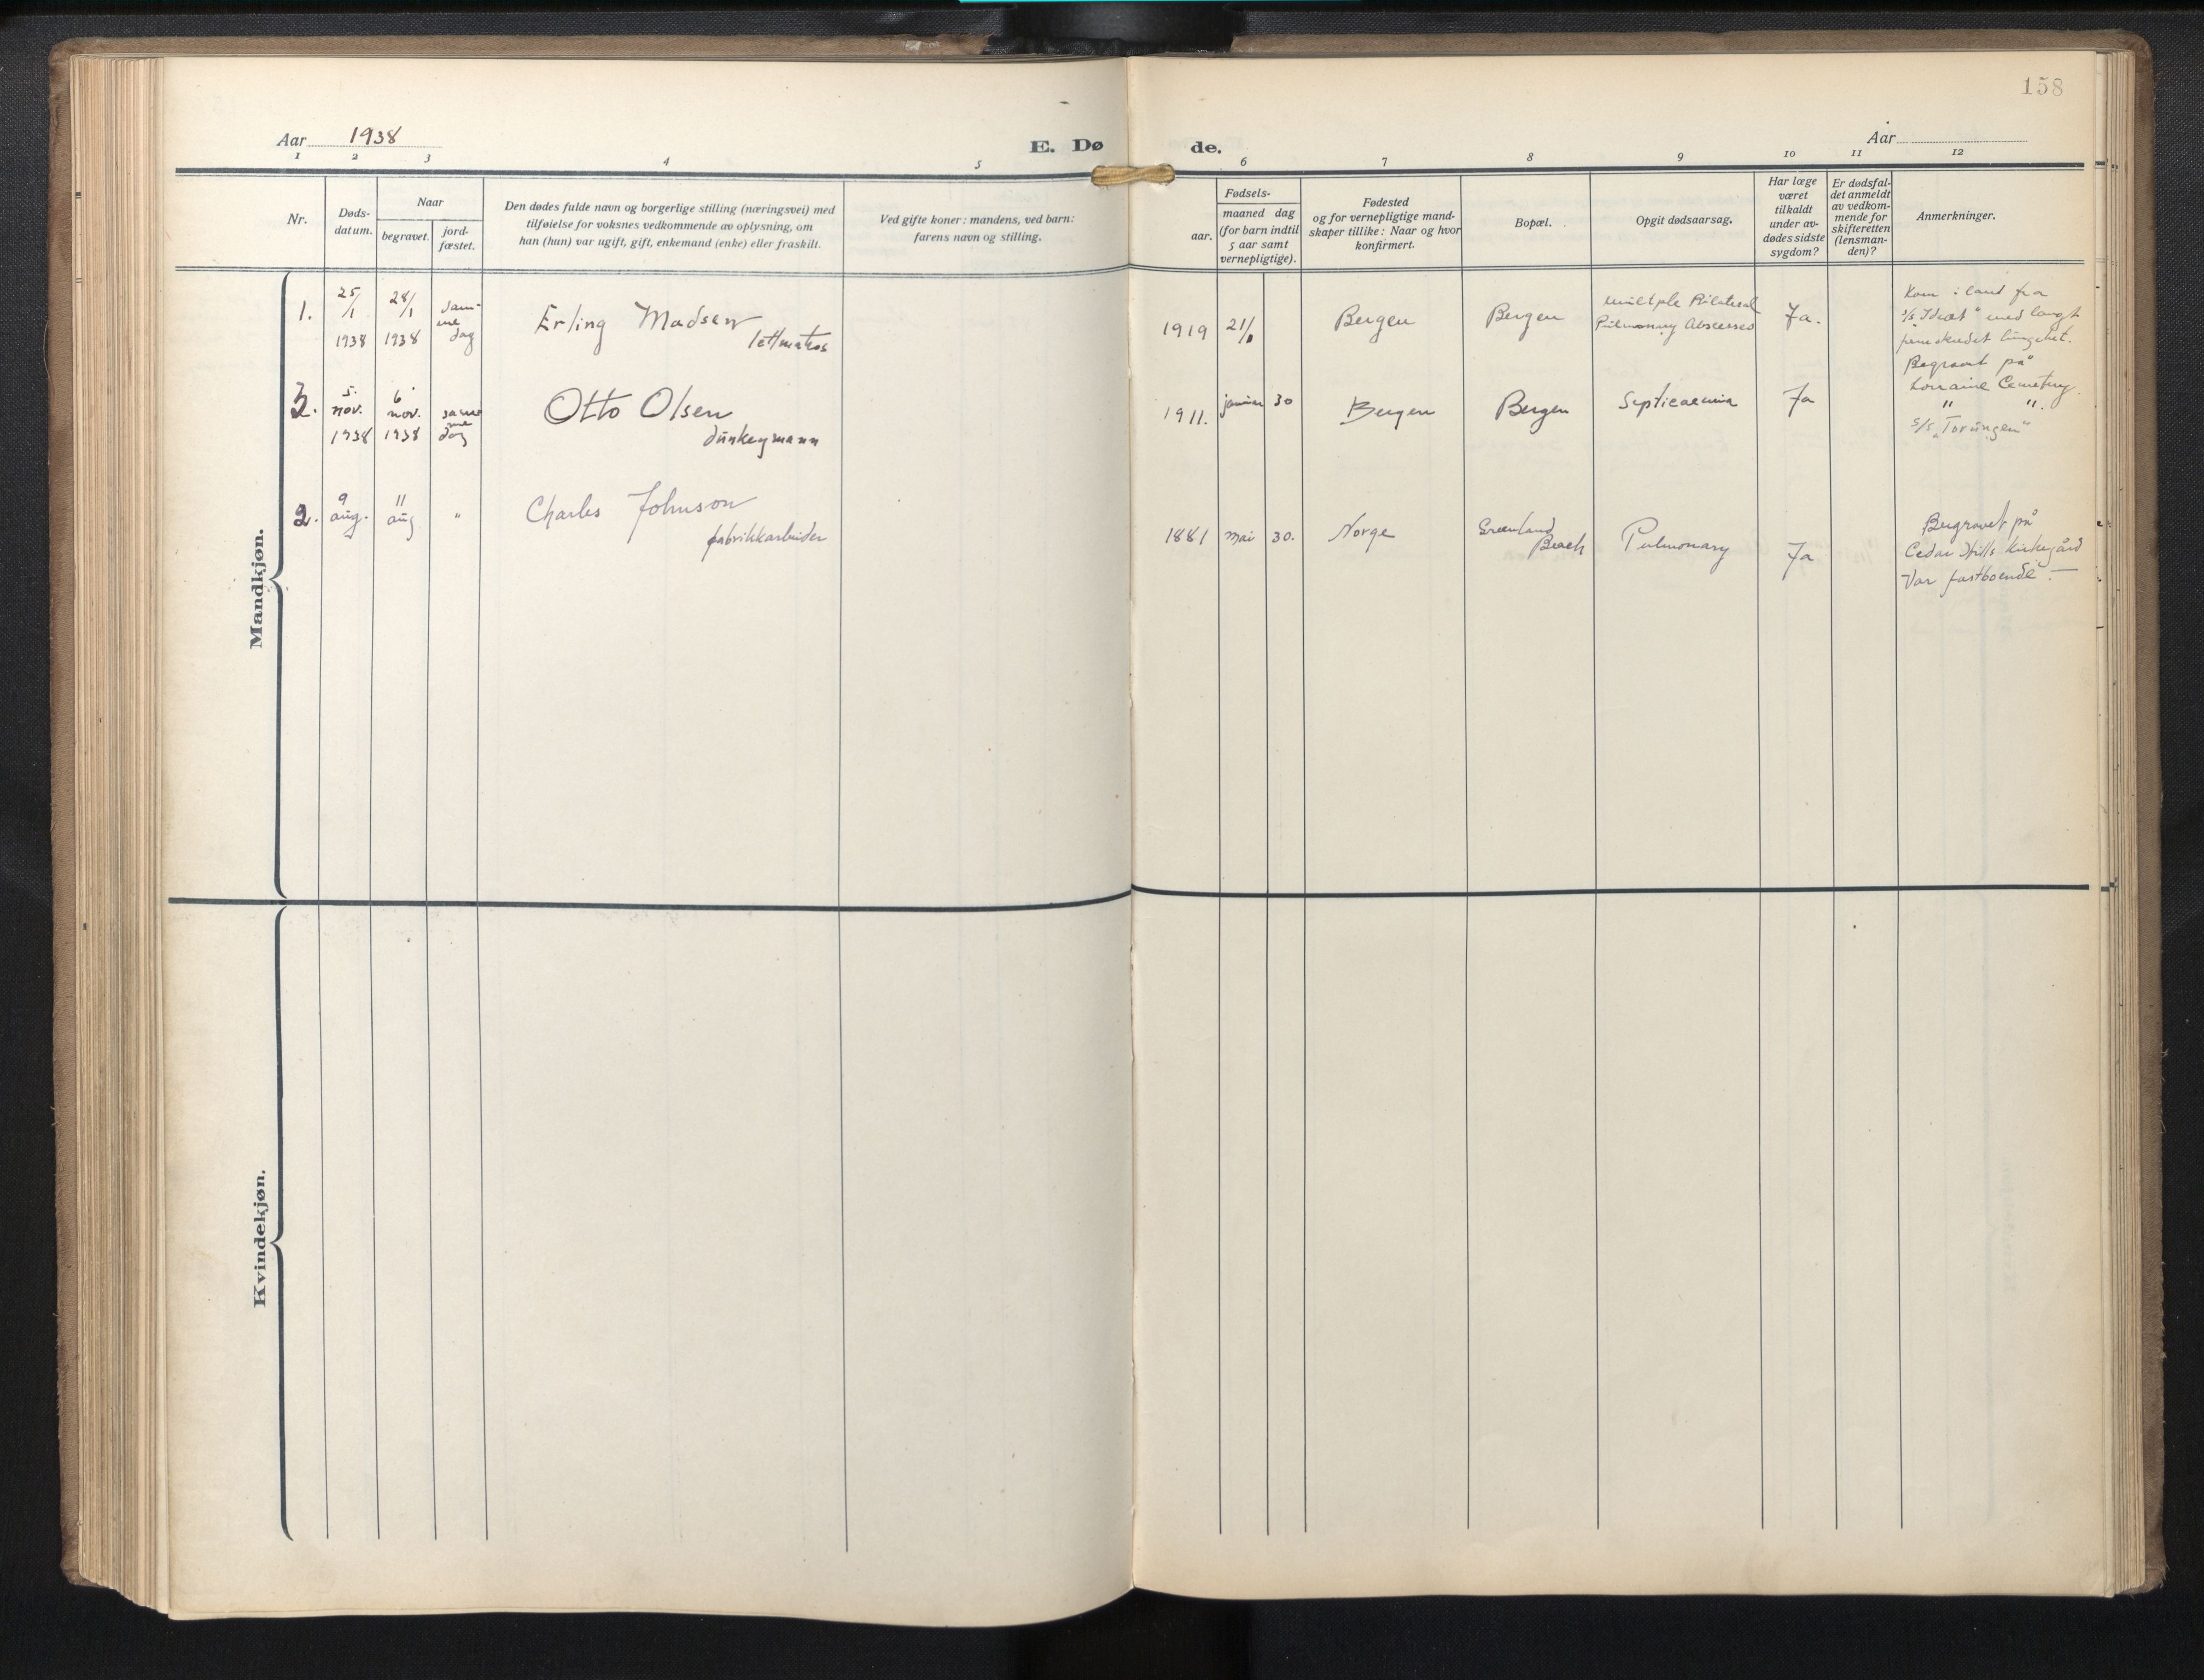 158
Aar 1938
E. Dø de.
Aar
1 2 3 4 5 6 7 8 9 10 11 12
Nr.
Døds-
datum.
Naar
begravet.
jord-
fæstet.
Den dødes fulde navn og borgerlige stilling (næringsvei) med
tilføielse for voksnes vedkommende av oplysning, om
han (hun) var ugift, gift, enkemand (enke) eller fraskilt.
Ved gifte koner: mandens, ved barn:
farens navn og stilling.
Fødsels-
aar.
maaned dag
(for barn indtil
5 aar samt
vernepligtige).
Fødested
og for vernepligtige mand-
skaper tillike: Naar og hvor
konfirmert.
Bopæl.
Opgit dødsaarsag.
Har læge
været
tilkaldt
under av-
dødes sidste
sygdom?
Er dødsfal-
det anmeldt
av vedkom-
mende for
skifteretten
(lensman-
den)?
Anmerkninger.
Mandkjøn.
1.
25/1
1938
28/1
1938
sam-
me
dag
Erling Madsen
lettmatros
1919
21/1
Bergen
Bergen
multple Bilateral
Pulmonary Abscesses
Ja.
Kom i land fra
s/s "Idræt" med langt
fremskredet
Begravet på
Lorraine Cemetery
3.
5.
nov.
1938
6.
nov.
1938
samme
dag
Otto Olsen
dunkeymann
1911.
januar 30
Bergen
Bergen
Septicaemia
Ja
" ".
s/s "Torungen"
2.
9
aug.
11
aug
"
Charles Johnson
fabrikkarbeider
1881
mai 30.
Norge
Greenland
Beach
Pulmonary
Ja
Begravet på
Cedar Hills kirkegård
Var fastboende. —
Kvindekjøn.